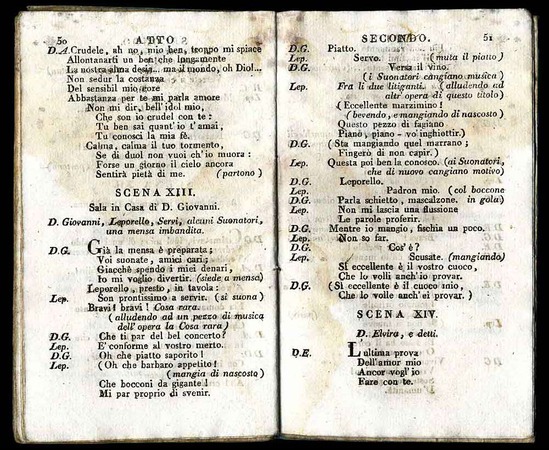 50 ATTO
D.A. Crudele, ah no, mio ben, troppo mi spiace
Allontanarti un ben che lungamente
La nostra alma desia... ma il mondo, oh Dio!...
Non sedur la costanza
Del sensibil mio core
Abbastanza per te mi parla amore
Non mi dir, bell'idol mio,
Che son io crudel con te:
Tu ben sai quant'io t'amai,
Tu conosci la mia fè.
Calma, calma il tuo tormento,
Se di duol non vuoi ch'io muora:
Forse un giorno il cielo ancora
Sentirà pietà di me. (partono)
SCENA XIII.
Sala in Casa di D. Giovanni.
D. Giovanni, Leporello, Servi, alcuni Suonatori,
una mensa imbandita.
D.G. Già la mensa è preparata;
Voi suonate, amici cari;
Giacchè spendo i miei denari,
Io mi voglio divertir. (siede a mensa)
Leporello, presto, in tavola:
Lep. Son prontissimo a servir. (si suona)
Bravi! bravi! Cosa rara.
(alludendo ad un pezzo di musica
dell'opera la Cosa rara)
D.G. Che ti par del bel concerto?
Lep. E' conforme al vostro merto.
D.G. Oh che piatto saporito!
Lep. (Oh che barbaro appetito!
(mangia di nascosto)
Che bocconi da gigante!
Mi par proprio di svenir.
SECONDO. 51
D.G. Piatto.
Lep. Servo. (muta il piatto)
D.G. Versa il vino.
(i Suonatori cangiano musica)
Lep. Fra li due litiganti. (alludendo ad
altr'opera di questo titolo)
(Eccellente marzimino!
(bevendo, e mangiando di nascosto)
Questo pezzo di fagiano
Piano, piano - vo'inghiottir.)
D.G. (Sta mangiando quel marrano;
Fingerò di non capir.)
Lep. Questa poi ben la conosco. (ai Suonatori,
che di nuovo cangiano motivo)
D.G. Leporello.
Lep. Padron mio. (col boccone
D.G. Parla schietto, mascalzone. in gola)
Lep. Non mi lascia una flussione
Le parole proferir.
D.G. Mentre io mangio, fischia un poco.
Lep. Non so far.
D.G. Cos'è?
Lep. Scusate. (mangiando)
Sì eccellente è il vostro cuoco,
Che lo volli anch'io provar.
D.G. (Sì eccellente è il cuoco mio,
Che lo volle anch'ei provar.)
SCENA XIV.
D. Elvira, e detti.
D.E. L'ultima prova
Dell'amor mio
Ancor vogl'io
Fare con te.